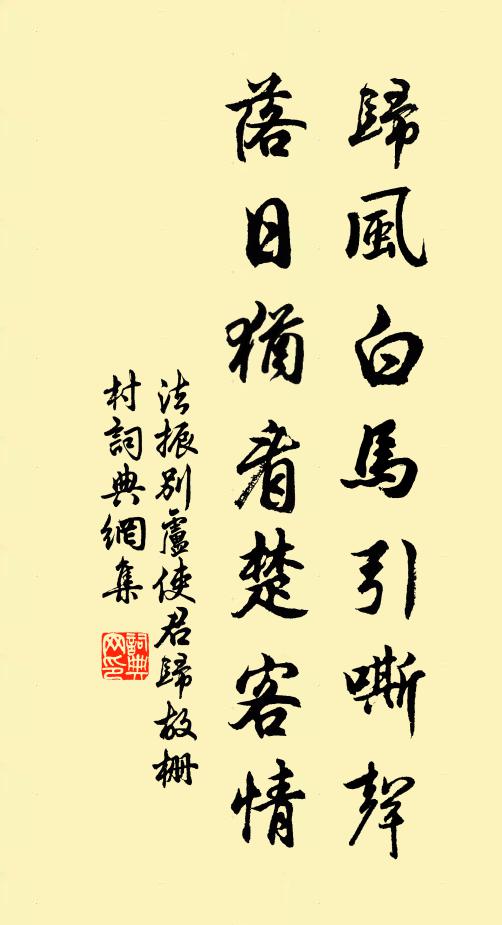 歸風白馬引嘶聲
落日猶看楚客情
法振別盧使君歸故柵
村詞典網集
詞典
网印